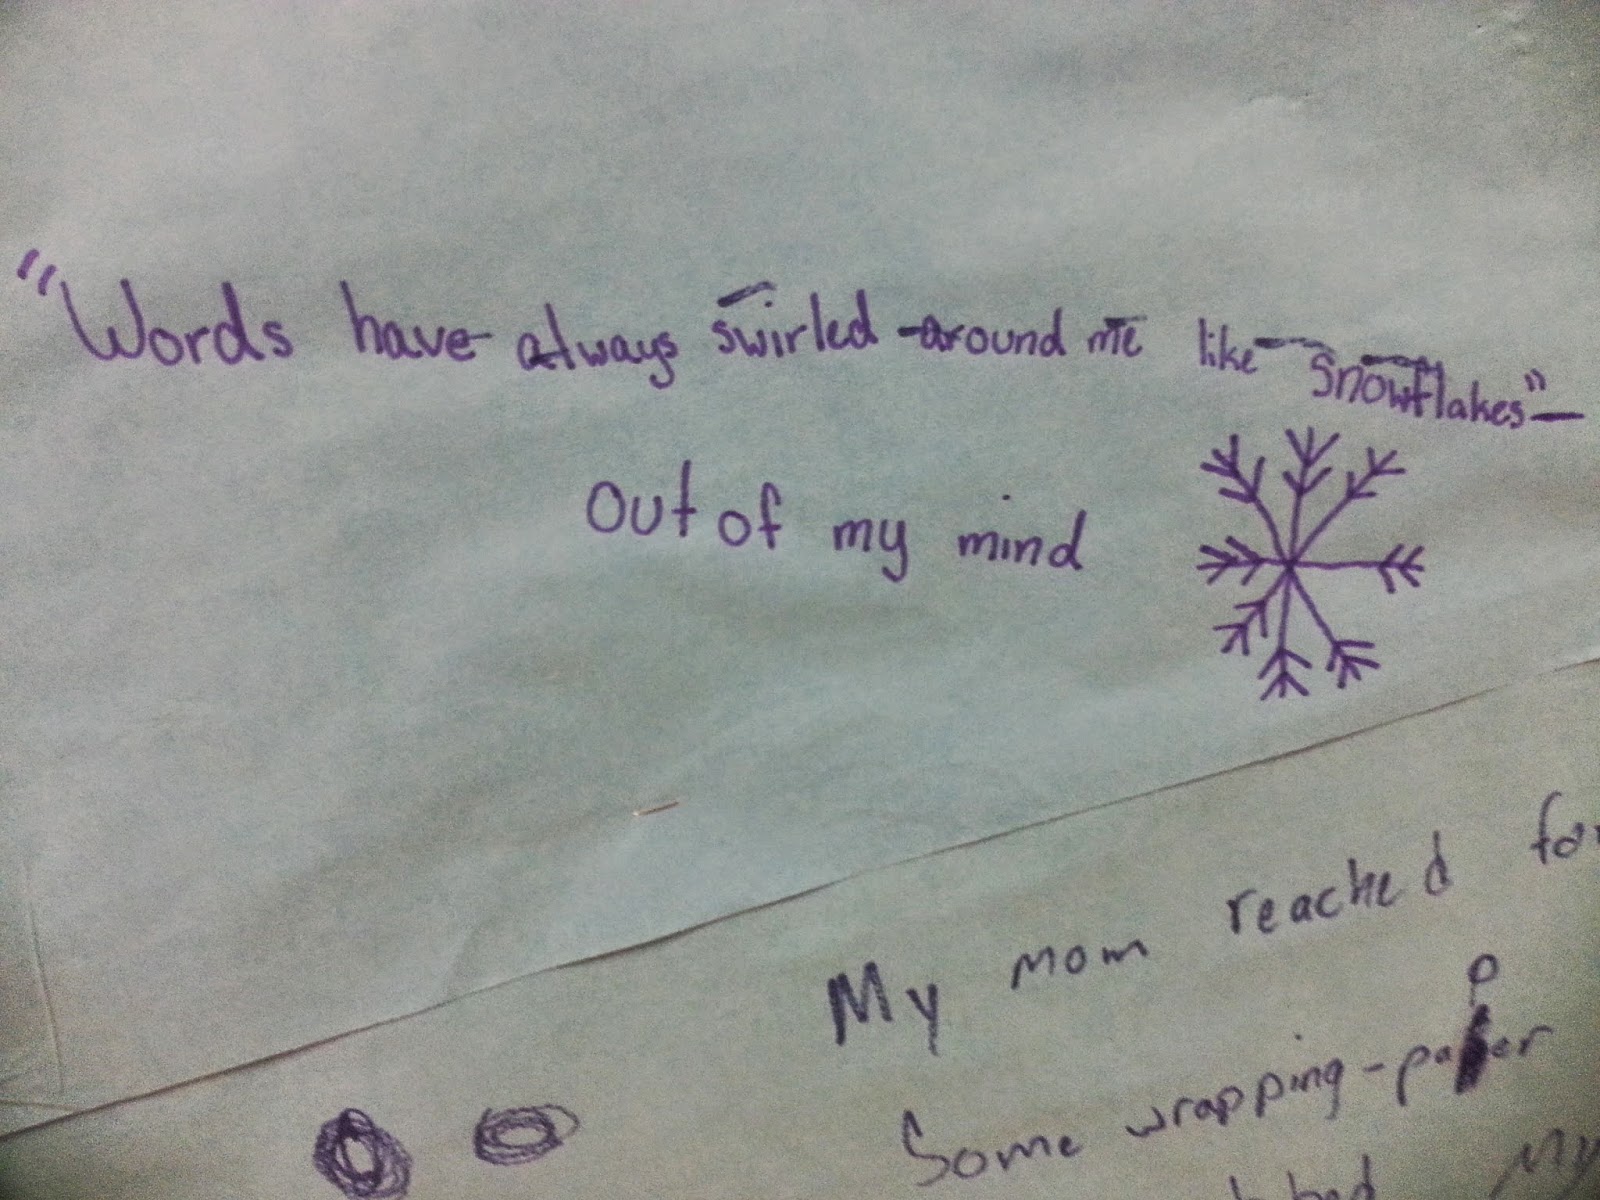 "Words have always swirled around me like snowflakes"—
out of my mind
My mom reached
Some wrapping-paper
My